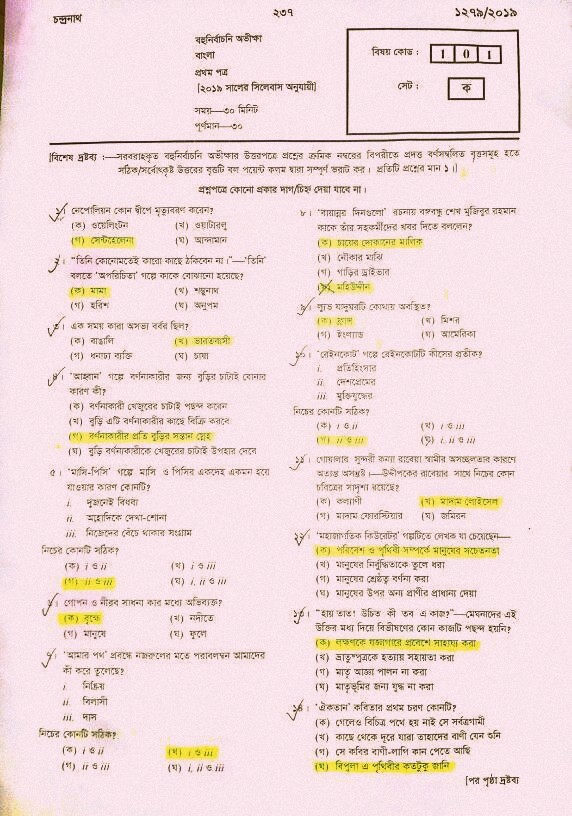 চন্দ্রনাথ
২৩৭
১২৭৯/২০১৯
বহুনির্বাচনি অভীক্ষা
বাংলা
প্রথম পত্র
[২০১৯ সালের সিলেবাস অনুযায়ী]
সময়—৩০ মিনিট
পূর্ণমান—৩০
বিষয় কোড : 1 0 1
সেট : ক
[বিশেষ দ্রষ্টব্য :—সরবরাহকৃত বহুনির্বাচনি অভীক্ষার উত্তরপত্রে প্রশ্নের ক্রমিক নম্বরের বিপরীতে প্রদত্ত বর্ণসম্বলিত বৃত্তসমূহ হতে
সঠিক/সর্বোৎকৃষ্ট উত্তরের বৃত্তটি বল পয়েন্ট কলম দ্বারা সম্পূর্ণ ভরাট কর। প্রতিটি প্রশ্নের মান ১।]
প্রশ্নপত্রে কোনো প্রকার দাগ/চিহ্ন দেয়া যাবে না।
১। নেপোলিয়ন কোন দ্বীপে মৃত্যুবরণ করেন?
(ক) ওয়েলিংটন (খ) ওয়াটারলু
(গ) সেন্টহেলেনা (ঘ) আন্দামান
২। "তিনি কোনোমতেই কারো কাছে ঠকিবেন না।"—'তিনি'
বলতে 'অপরিচিতা' গল্পে কাকে বোঝানো হয়েছে?
(ক) মামা (খ) শম্ভুনাথ
(গ) হরিশ (ঘ) অনুপম
৩। এক সময় কারা অসভ্য বর্বর ছিল?
(ক) বাঙালি (খ) ভারতবাসী
(গ) ধনাঢ্য ব্যক্তি (ঘ) চাষা
৪। 'আহ্বান' গল্পে বর্ণনাকারীর জন্য বুড়ির চাটাই বোনার
কারণ কী?
(ক) বর্ণনাকারী খেজুরের চাটাই পছন্দ করেন
(খ) বুড়ি এটি বর্ণনাকারীর কাছে বিক্রি করবে
(গ) বর্ণনাকারীর প্রতি বুড়ির সন্তান স্নেহ
(ঘ) বুড়ি বর্ণনাকারীকে খেজুরের চাটাই উপহার দেবে
৫। 'মাসি-পিসি' গল্পে মাসি ও পিসির একদেহ একমন হয়ে
যাওয়ার কারণ কোনটি?
i. দুজনেই বিধবা
ii. আহ্লাদিকে দেখা-শোনা
iii. নিজেদের বেঁচে থাকার সংগ্রাম
নিচের কোনটি সঠিক?
(ক) i ও ii (খ) i ও iii
(গ) ii ও iii (ঘ) i, ii ও iii
৬। গোপন ও নীরব সাধনা কার মধ্যে অভিব্যক্ত?
(ক) বৃক্ষে (খ) নদীতে
(গ) মানুষে (ঘ) ফুলে
৭। 'আমার পথ' প্রবন্ধে নজরুলের মতে পরাবলম্বন আমাদের
কী করে তুলেছে?
i. নিষ্ক্রিয়
ii. বিলাসী
iii. দাস
নিচের কোনটি সঠিক?
(ক) i ও ii (খ) i ও iii
(গ) ii ও iii (ঘ) i, ii ও iii
৮। 'বায়ান্নর দিনগুলো' রচনায় বঙ্গবন্ধু শেখ মুজিবুর রহমান
কাকে তাঁর সহকর্মীদের খবর দিতে বললেন?
(ক) চায়ের দোকানের মালিক
(খ) নৌকার মাঝি
(গ) গাড়ির ড্রাইভার
(ঘ) মহিউদ্দীন
৯। ল্যুভ যাদুঘরটি কোথায় অবস্থিত?
(ক) ফ্রান্স (খ) মিশর
(গ) ইংল্যান্ড (ঘ) আমেরিকা
১০। 'রেইনকোট' গল্পে রেইনকোটটি কীসের প্রতীক?
i. প্রতিহিংসার
ii. দেশপ্রেমের
iii. মুক্তিযুদ্ধের
নিচের কোনটি সঠিক?
(ক) i ও ii (খ) i ও iii
(গ) ii ও iii (ঘ) i, ii ও iii
১১। গোয়ালার সুন্দরী কন্যা রাবেয়া স্বামীর অসচ্ছলতার কারণে
অত্যন্ত অসন্তুষ্ট।—উদ্দীপকের রাবেয়ার সাথে নিচের কোন
চরিত্রের সাদৃশ্য রয়েছে?
(ক) কল্যাণী (খ) মাদাম লোইসেল
(গ) মাদাম ফোরস্টিয়ার (ঘ) জমিরন
১২। 'মহাজাগতিক কিউরেটর' গল্পটিতে লেখক যা চেয়েছেন—
(ক) পরিবেশ ও পৃথিবী সম্পর্কে মানুষের সচেতনতা
(খ) মানুষের নির্বুদ্ধিতাকে তুলে ধরা
(গ) মানুষের শ্রেষ্ঠত্ব বর্ণনা করা
(ঘ) মানুষের উপর অন্য প্রাণীর প্রাধান্য দেয়া
১৩। "হায় তাত! উচিত কী তব এ কাজ?"—মেঘনাদের এই
উক্তির মধ্য দিয়ে বিভীষণের কোন কাজটি পছন্দ হয়নি?
(ক) লক্ষণকে যজ্ঞাগারে প্রবেশে সাহায্য করা
(খ) ভ্রাতুষ্পুত্রকে হত্যায় সহায়তা করা
(গ) মাতৃ আজ্ঞা পালন না করা
(ঘ) মাতৃভূমির জন্য যুদ্ধ না করা
১৪। 'ঐকতান' কবিতার প্রথম চরণ কোনটি?
(ক) গেলেও বিচিত্র পথে হয় নাই সে সর্বত্রগামী
(খ) কাছে থেকে দূরে যারা তাহাদের বাণী যেন শুনি
(গ) সে কবির বাণী-লাগি কান পেতে আছি
(ঘ) বিপুলা এ পৃথিবীর কতটুকু জানি
[পর পৃষ্ঠা দ্রষ্টব্য